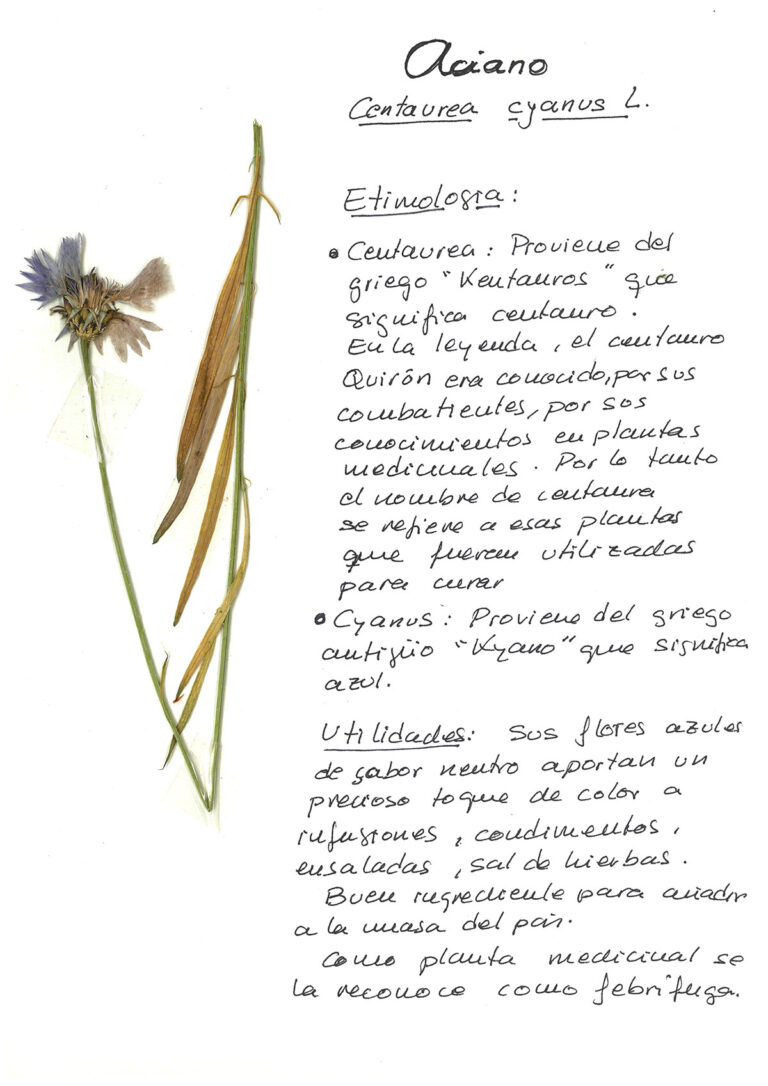 Aciano
Centaurea cyanus L.
Etimología:
• Centaurea: Proviene del
griego "Kentauros" que
significa centauro.
En la leyenda, el centauro
Quirón era conocido, por sus
combatientes, por sos
conocimientos en plantas
medicinales. Por lo tanto
el nombre de centaura
se refiere a esas plantas
que fueran utilizadas
para curar
• Cyanus: Proviene del griego
antigüo "Kyano" que significa
azul.
Utilidades: Sus flores azules
de sabor neutro aportan un
precioso toque de color a
infusiones, condimentos,
ensaladas, sal de hierbas.
Buen ingrediente para añadir
a la masa del pan.
Como planta medicinal se
la reconoce como febrífuga.